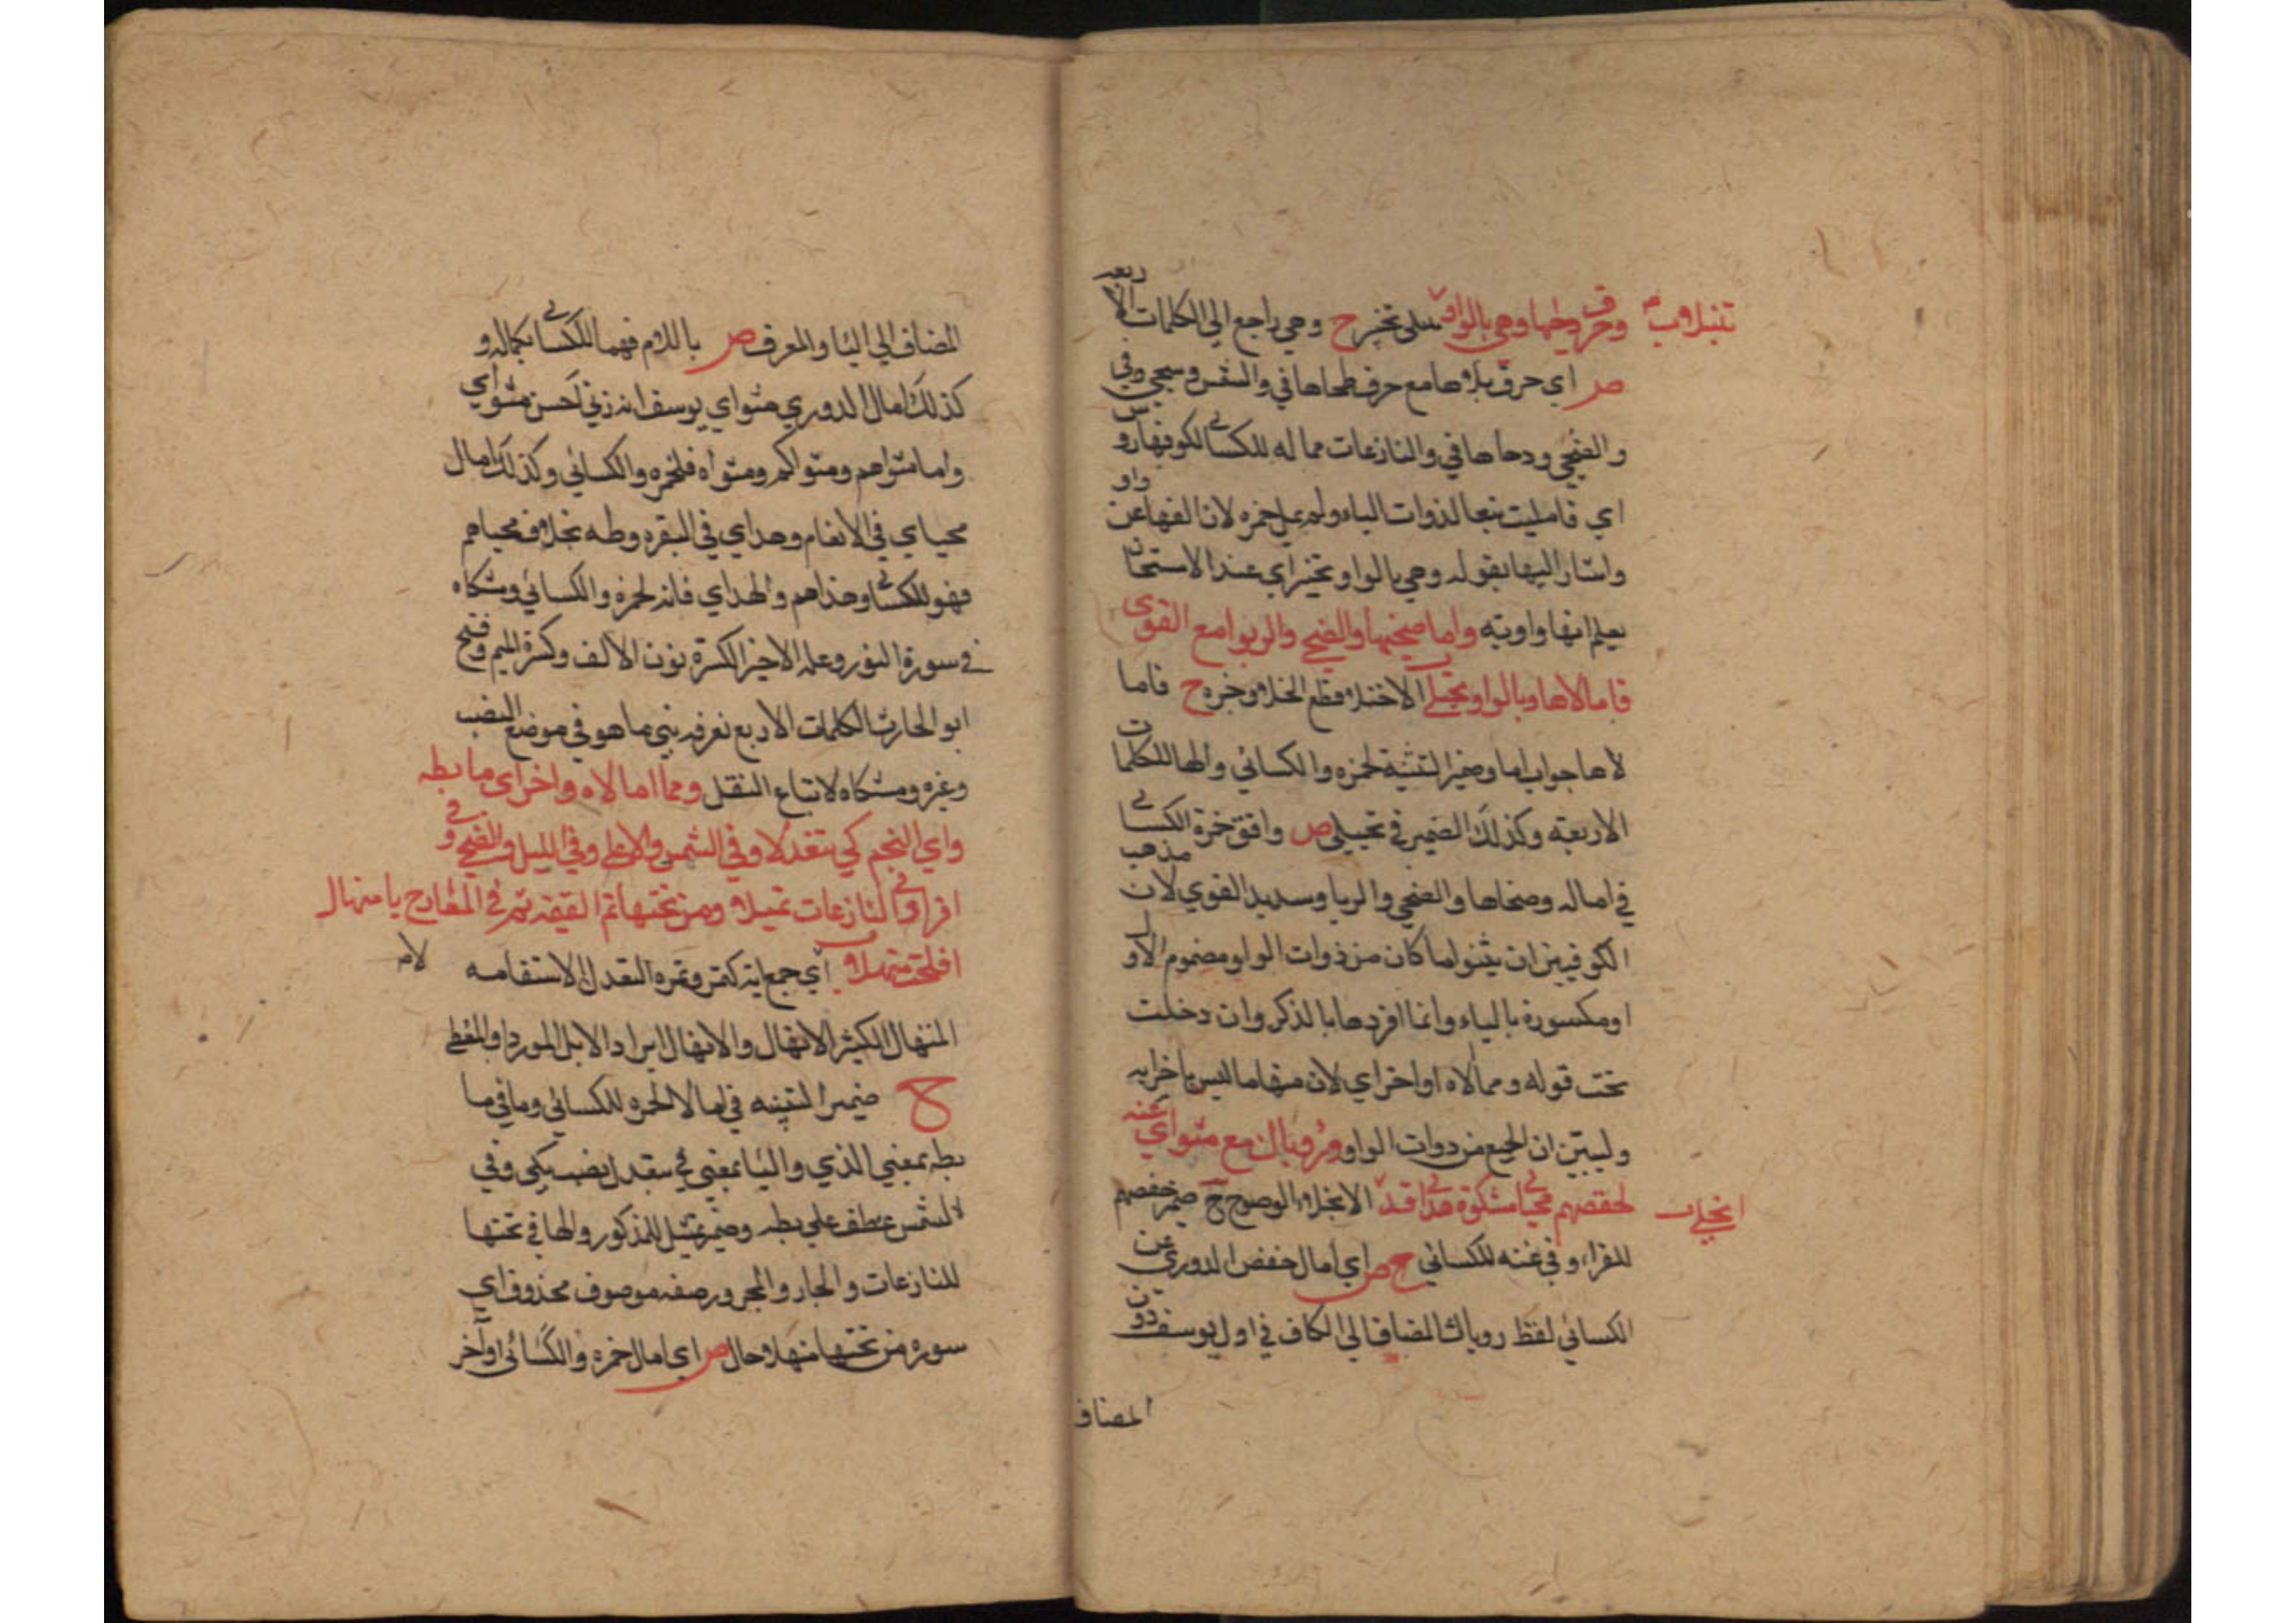 وحرف دحاها وهي بالواو تبتلى تختبر ح وهي راجع الي الكلمات الاربعه
ص اي حرف تلاها مع حرف طحاها في والشمس وسجي وفي
والضحي ودحاها في والنازعات مماله للكسائي لكونها روس
اي فاميلت تبعا لذوات الياء ولم يمل حمزه لان الفها عن واو
واشار اليها بقوله وهي بالواو تختبر اي عند الامتحان
يعلم انها واويه واما ضحيها والضحي والربوا مع القوى
فامالاها وبالواو تختلي الاختلاء قطع الخلا وجزه ح فاما
لاها جواب اما وضمير التثنية لحمزه والكسائي والها للكلمات
الاربعة وكذلك الضمير في تختلي ص وافق حمزة الكسائي
في اماله وضحاها والضحي والربا وسديد القوي لان مذهب
الكوفيين ان يثنوا ما كان من ذوات الواو مضموم الاول
او مكسورة بالياء وانما افردها بالذكر وان دخلت
تحت قوله ومما امالاه اواخر اي لان منها ما ليس باخر ايه
وليبين ان الجميع من ذوات الواو ورؤياك مع مثواي عنه
لحفصهم محياي مشكوة هداي قد انجلى الانجلاء الوضوح ح ضمير حفصهم
للقراء وفي عنه للكسائي ح ص اي امال حفص الدوري عن
الكسائي لفظ روياك المضاف الي الكاف في اول يوسف دون
المضاف
المضاف الي اليا والمعرف ص باللام فهما للكسائي بكماله و
كذلك امال الدوري مثواي يوسف انه ربي احسن مثواي
واما مثواهم ومثواكم ومثواه فلحمزه والكسائي وكذلك امال
محياي في الانعام وهداي في البقره وطه بخلاف محياهم
فهو للكسائي وهداهم والهدي فانه لحمزه والكسائي ومشكاه
في سورة النور وعله الاخير الكسرة بون الالف وكسرة الميم وفتح
ابو الحارث الكلمات الاربع نعرفه بني ما هو في موضع النصب
وغره ومشكاه لاتباع النقل ومما امالاه واخر اي ما بطه
واي النجم كي تتعدلا وفي الشمس والاعلي وفي الليل والضحي وفي
اقرا وفي النازعات تميلا ومن تحتها ثم القيمه ثم في المعارج يا منهال
افلحت منهلا اي جمع ايه كتمر وتمره التعدل الاستقامه
المنهال الكثير الانهال والانهال ايراد الابل المورد والمعطي
ح ضمير التثنيه في امالا لحمزه للكسائي وما في ما
بطه بمعني الذي واليا بمعني في يتعدل نصب بكي وفي
الشمس عطف علي بطه وضمير تميل للمذكور والها في تحتها
للنازعات والجار والمجرور صفه موصوف محذوف اي
سوره من تحتها منهلا حال ص اي امال حمزه والكسائي اواخر